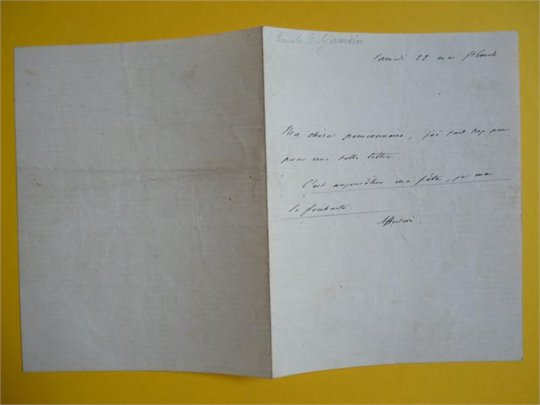 Emile de Girardin
Samedi 22 mai
Ma chère pensionnaire, j'ai tout
pour une telle lettre.
C'est aujourd'hui ma fête, je me
la souhaite